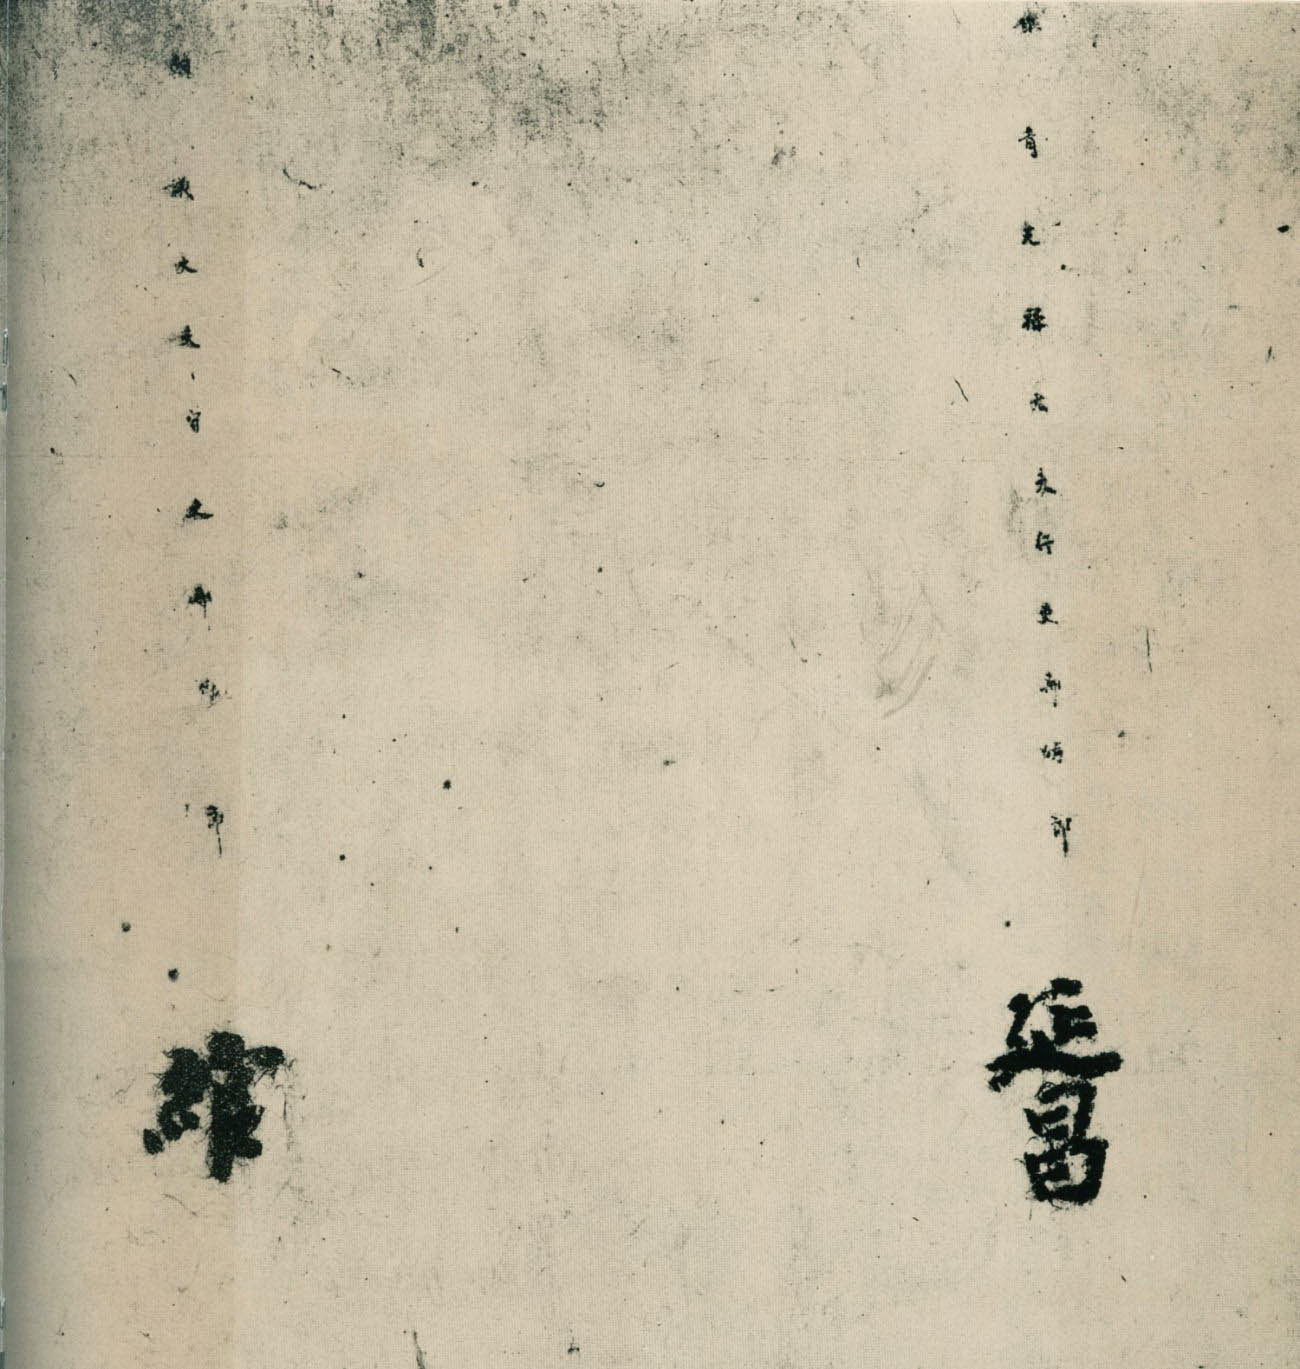 銀青光祿大夫行吏部侍郎延昌
朝議大夫守吏部侍郎